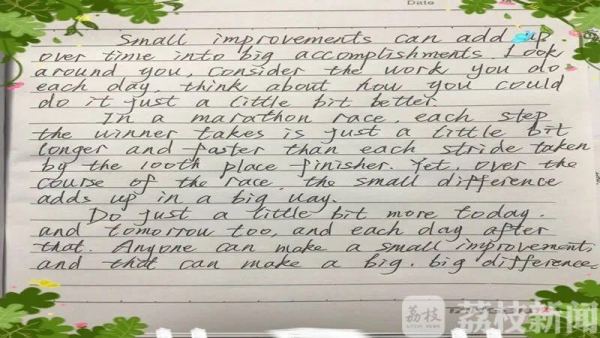 Date
Small improvements can add up
over time into big accomplishments. Look
around you, consider the work you do
each day, think about how you could
do it just a little bit better.
In a marathon race, each step
the winner takes is just a little bit
longer and faster than each stride taken
by the 100th place finisher. Yet, over the
course of the race, the small difference
adds up in a big way.
Do just a little bit more today.
and tomorrow too, and each day after
that. Anyone can make a small improvement,
and that can make a big, big difference.
荔枝
荔枝新闻